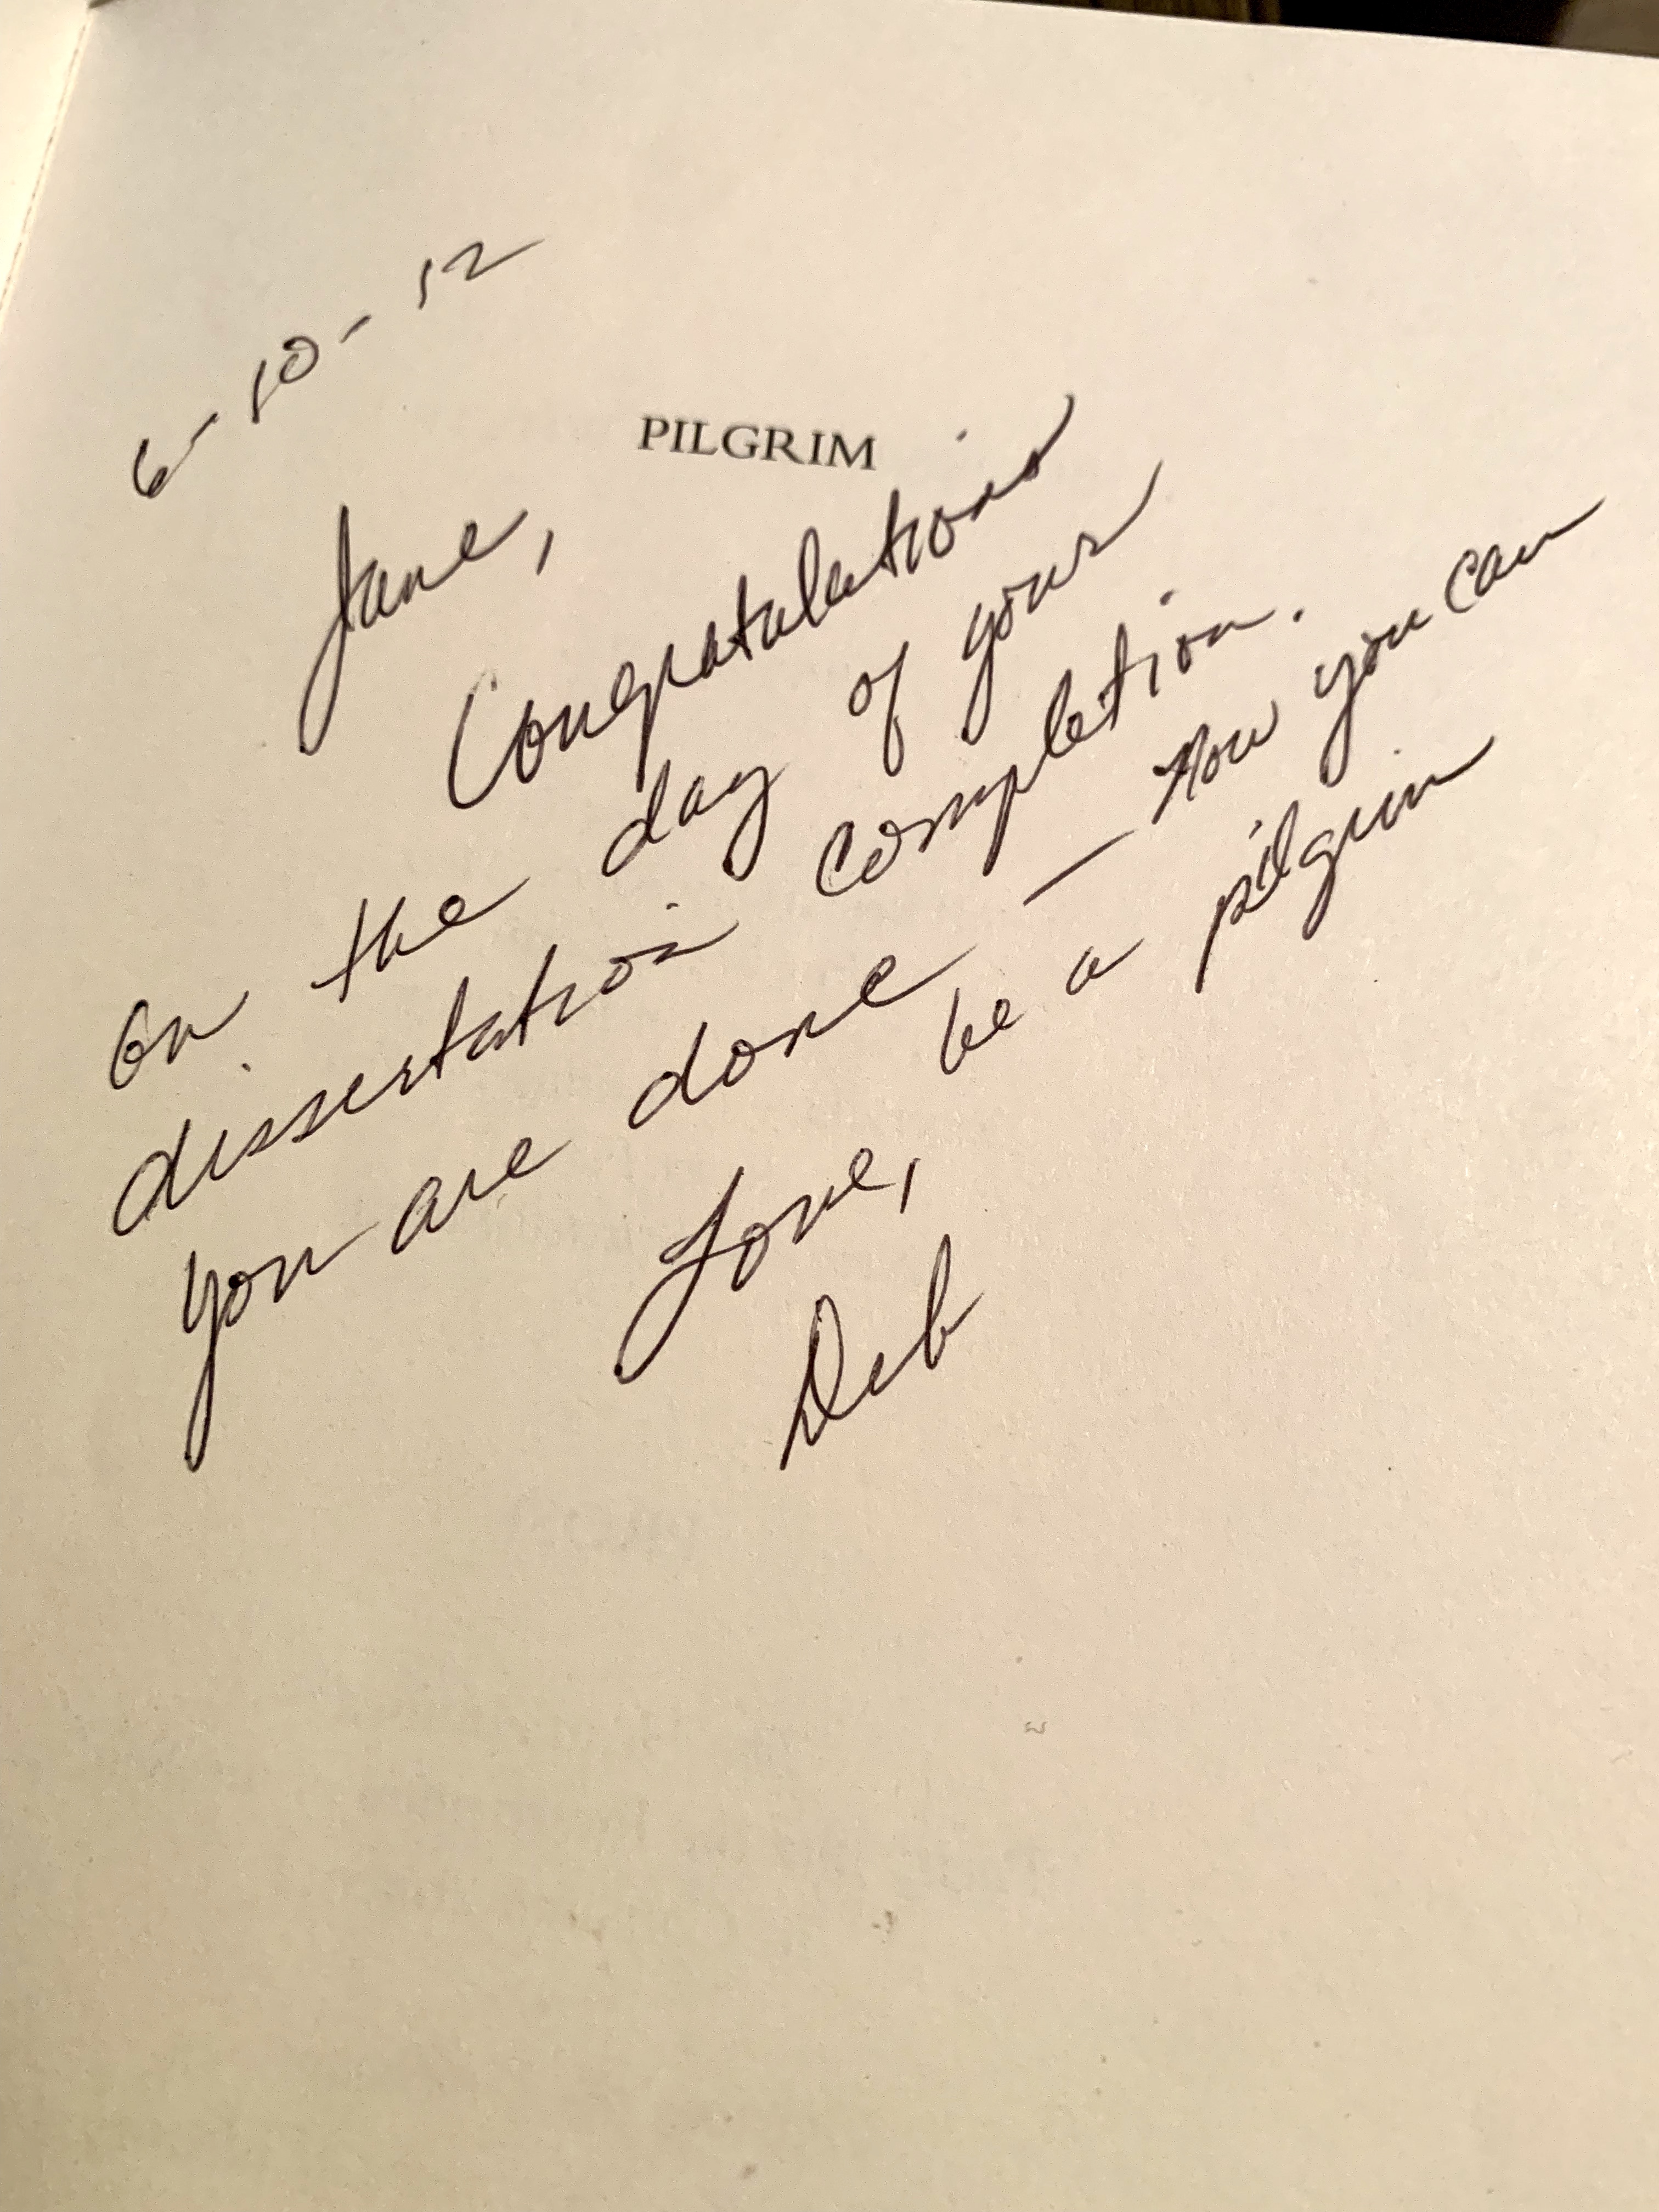 6-10-12
PILGRIM
Jane,
Congratulations
on the day of your
dissertation completion.
You are done — now you can
be a pilgrim
Love,
Deb